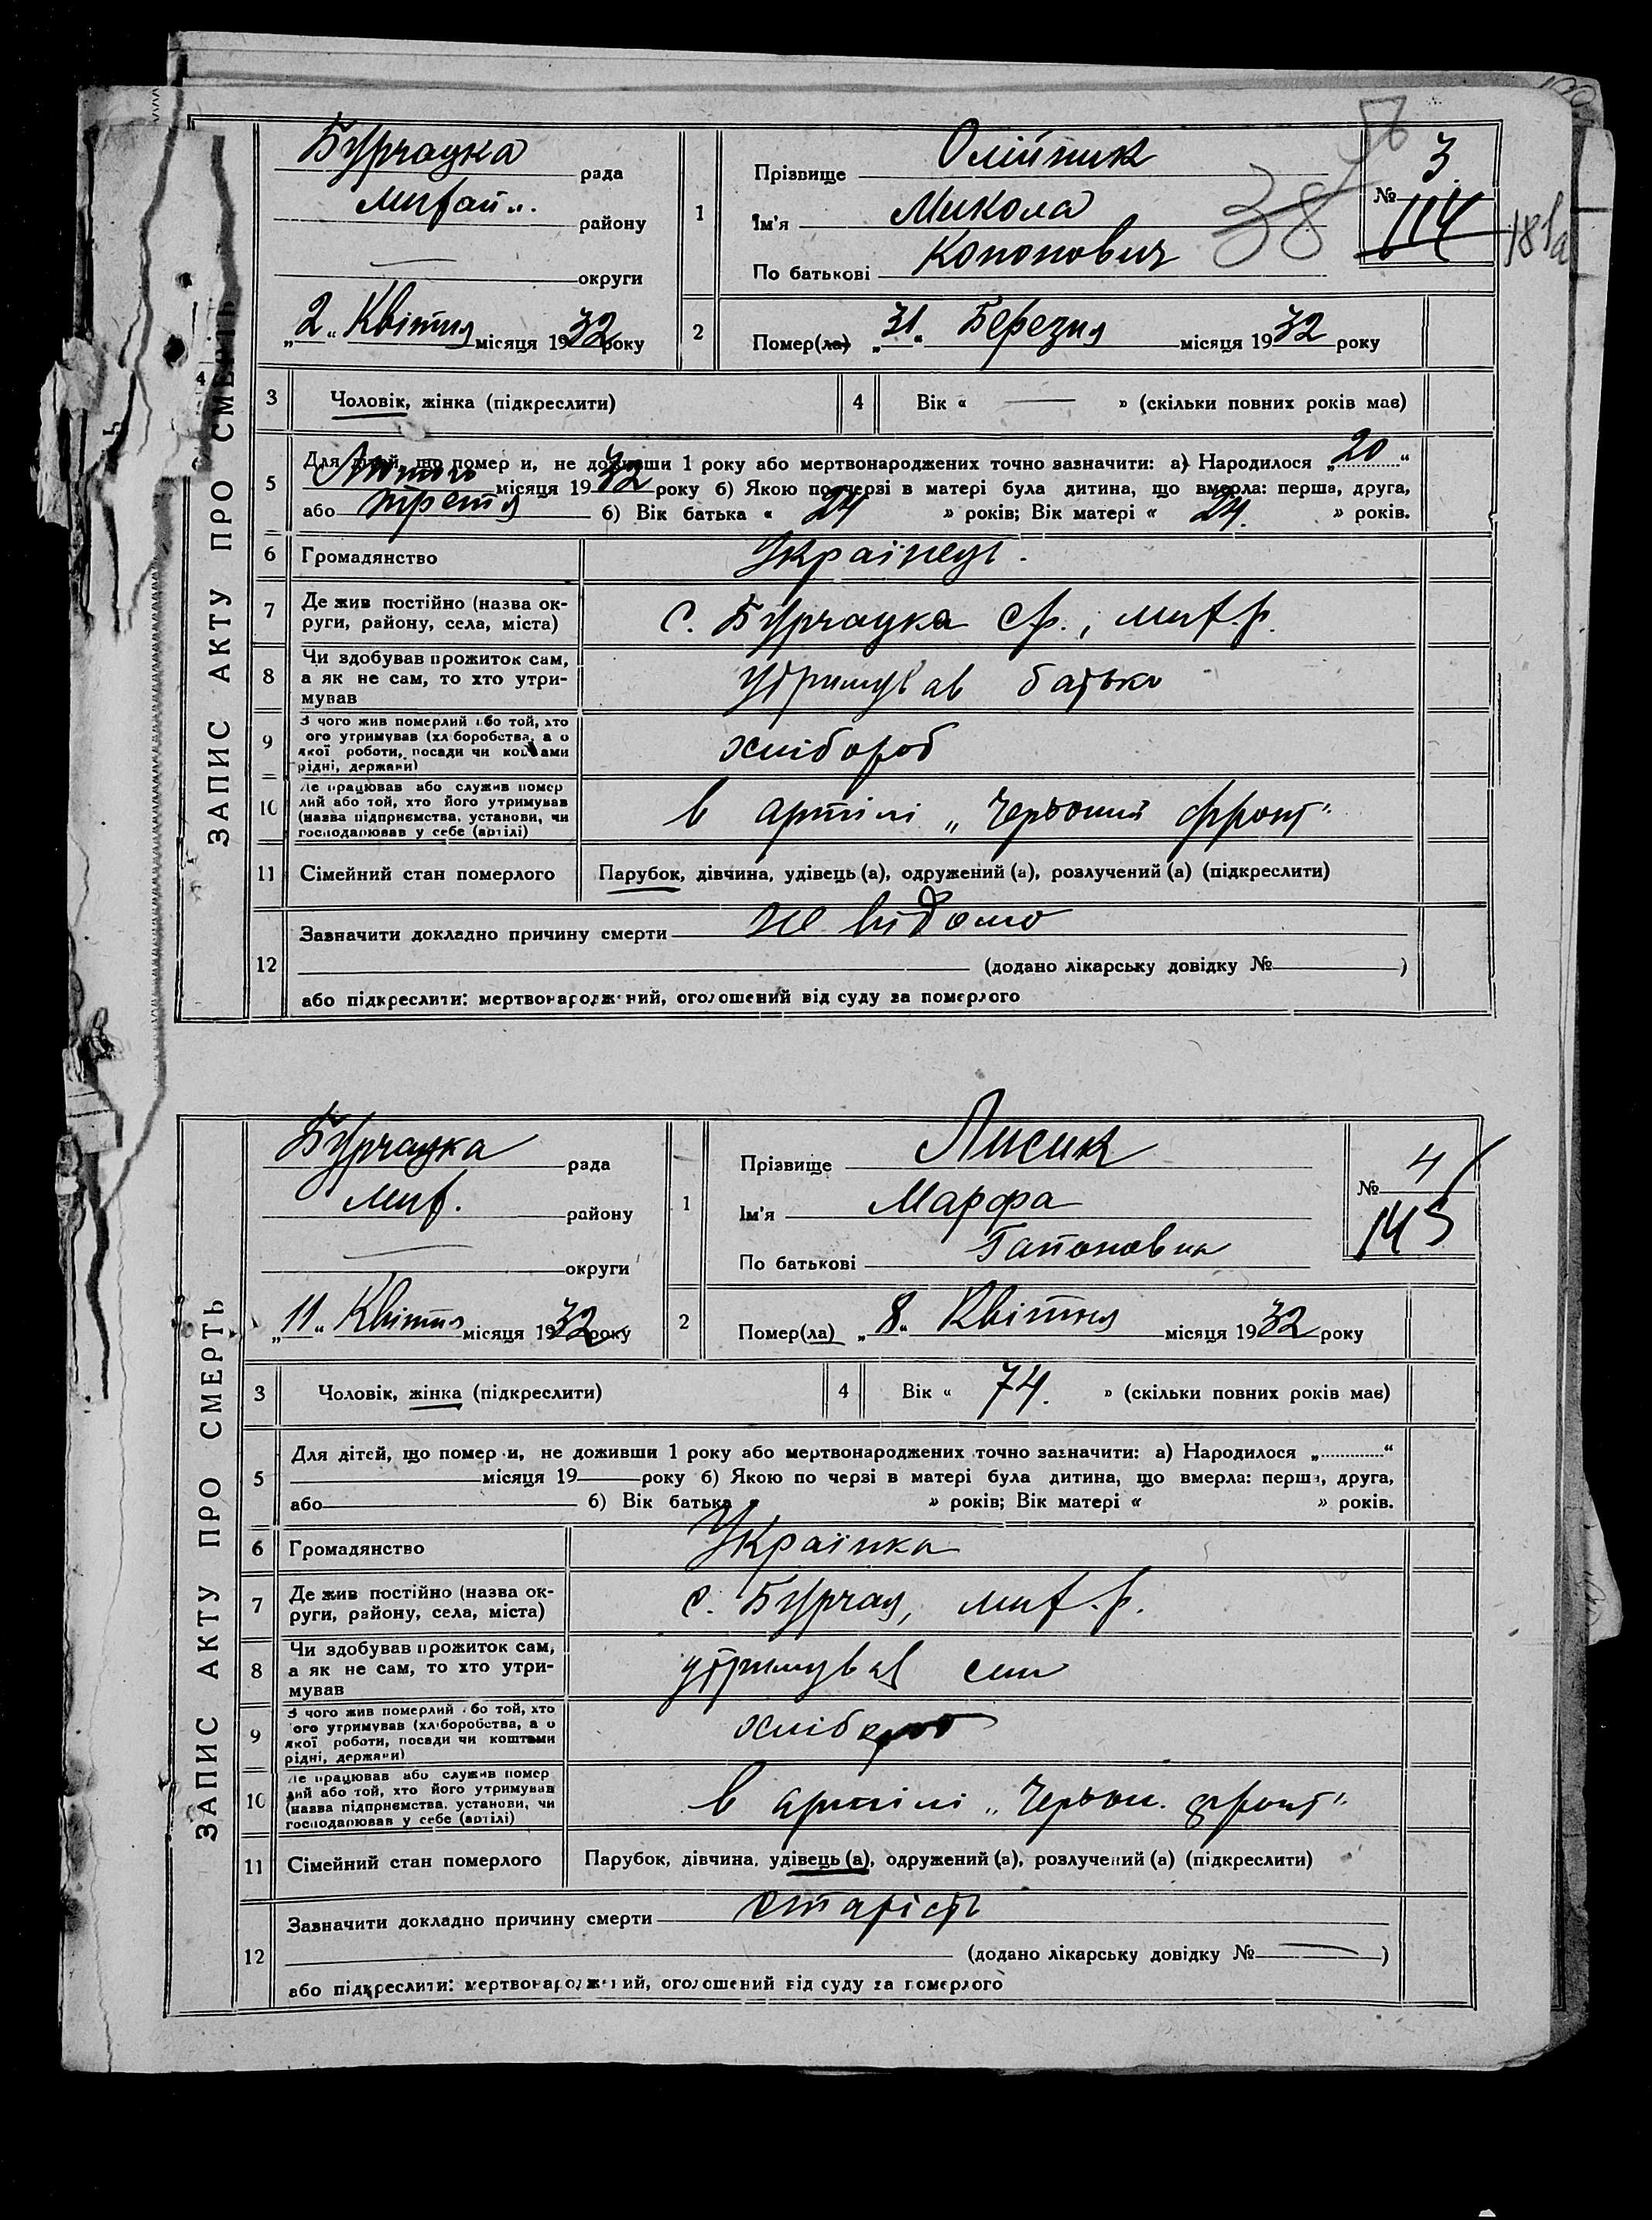 ЗАПИС АКТУ ПРО СМЕРТЬ
Бурчацка рада
Михайл. району
округи
„2“ Квітня місяця 1932 року
1
Прізвище Олійник
Ім'я Микола
По батькові Кононович
38
№ 3
114
2
Помер(ла) „31“ Березня місяця 1932 року
3 Чоловік, жінка (підкреслити)
4 Вік « — » (скільки повних років має)
5 Для дітей, що померли, не доживши 1 року або мертвонароджених точно зазначити: а) Народилося „20“
Лютого місяця 1932 року б) Якою по черзі в матері була дитина, що вмерла: перша, друга,
або третя б) Вік батька « 24 » років; Вік матері « 24. » років.
6 Громадянство Українець.
7 Де жив постійно (назва округи, району, села, міста) с. Бурчацка с/р., мих. р.
8 Чи здобував прожиток сам, а як не сам, то хто утримував
утримував батько
9 З чого жив померлий або той, хто
ого утримував (хліборобства, а о
якої роботи, посади чи коштами
рідні, держави)
хлібороб
10 Де працював або служив помер
лий або той, хто його утримував
(назва підприємства, установи, чи
господарював у себе (артілі)
в артілі „Червоний фронт“
11 Сімейний стан померлого Парубок, дівчина, удівець (а), одружений (а), розлучений (а) (підкреслити)
12 Зазначити докладно причину смерти не відомо
(додано лікарську довідку № )
або підкреслити: мертвонароджений, оголошений від суду за померлого
ЗАПИС АКТУ ПРО СМЕРТЬ
Бурчацка рада
Мих. району
округи
„11“ Квітня місяця 1932 року
1
Прізвище Лисик
Ім'я Марфа
По батькові Гапоновна
№ 4
145
2
Помер(ла) „8“ Квітня місяця 1932 року
3 Чоловік, жінка (підкреслити)
4 Вік « 74. » (скільки повних років має)
5 Для дітей, що померли, не доживши 1 року або мертвонароджених точно зазначити: а) Народилося „ “
місяця 19 року б) Якою по черзі в матері була дитина, що вмерла: перша, друга,
або б) Вік батька « » років; Вік матері « » років.
6 Громадянство Українка
7 Де жив постійно (назва округи, району, села, міста) с. Бурчац, мих. р.
8 Чи здобував прожиток сам,
а як не сам, то хто утри-
мував
утримував син
9 З чого жив померлий або той, хто
ого утримував (хліборобства, а о
якої роботи, посади чи коштами
рідні, держави)
хлібороб
10 Де працював або служив помер
лий або той, хто його утримував
(назва підприємства, установи, чи
господарював у себе (артілі)
в артілі „Червон. фронт“
11 Сімейний стан померлого Парубок, дівчина, удівець (а), одружений (а), розлучений (а) (підкреслити)
12 Зазначити докладно причину смерти старість
(додано лікарську довідку № — )
або підкреслити: мертвонароджений, оголошений від суду за померлого